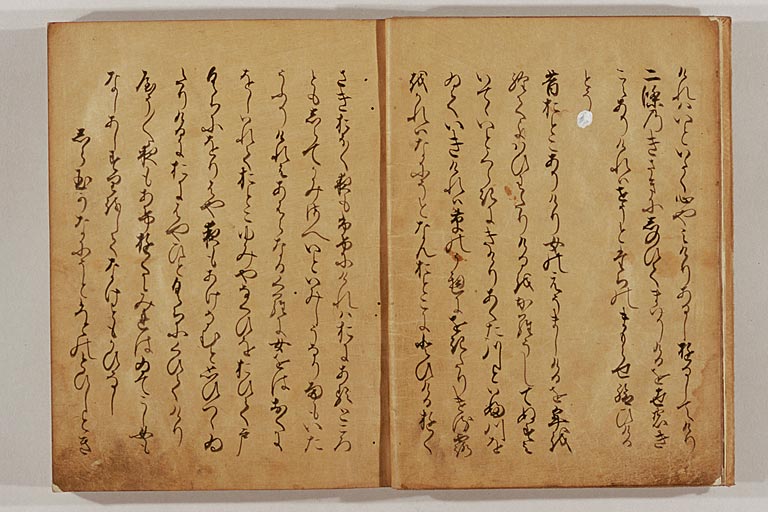 けれはいといたく心やみけりあるしゆるしてけり
二條のきさきにしのひてまいりけるを世のきこ
えありけれはせうとたちのまもらせ給ひける
とそ
昔おとこありけり女のえうましかりけるを年を
経てよはひわたりけるをからうしてぬすみ
いてていとくらきにきけりあくた川といふ川を
ゐていきけれは草の上にをきたりける露
をかれはなにそとなんおとこにとひけるゆく
さきおほく夜もふけにけれはおにあるところ
ともしらてかみさへいといみしうなり雨もいた
うふりけれはあはらなるくらに女をはおくに
をしいれておとこゆみやなくひをおひて戸
くちにをりはや夜もあけなむと思ひつつゐ
たりけるにおにはやひとくちにくひてけり
やうやう夜もあけゆくにみれはゐてこし女も
なしあしすりをしてなけともかひなし
しら玉かなにそと人のとひしとき